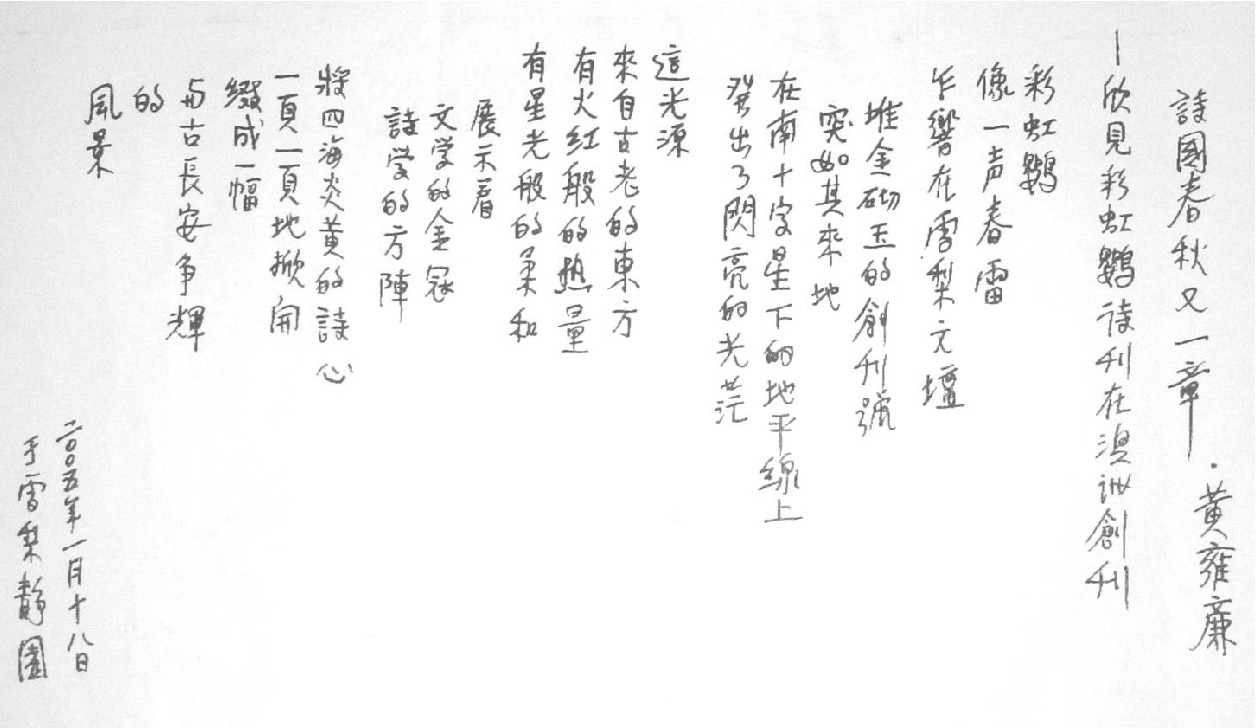 詩國春秋又一章·黄雍廉
—欣見彩虹鸚詩刊在澳洲創刊
彩虹鸚
像一声春雷
乍響在雪梨文壇
堆金砌玉的創刊號
突如其來地
在南十字星下的地平線上
發出了閃亮的光茫
這光源
來自古老的東方
有火紅般的热量
有星光般的柔和
展示着
文学的金冠
詩学的方陣
將四海炎黃的詩心
一頁一頁地掀開
綴成一幅
与古長安争輝
的
風景
二〇〇五年一月十八日
于雪梨靜園